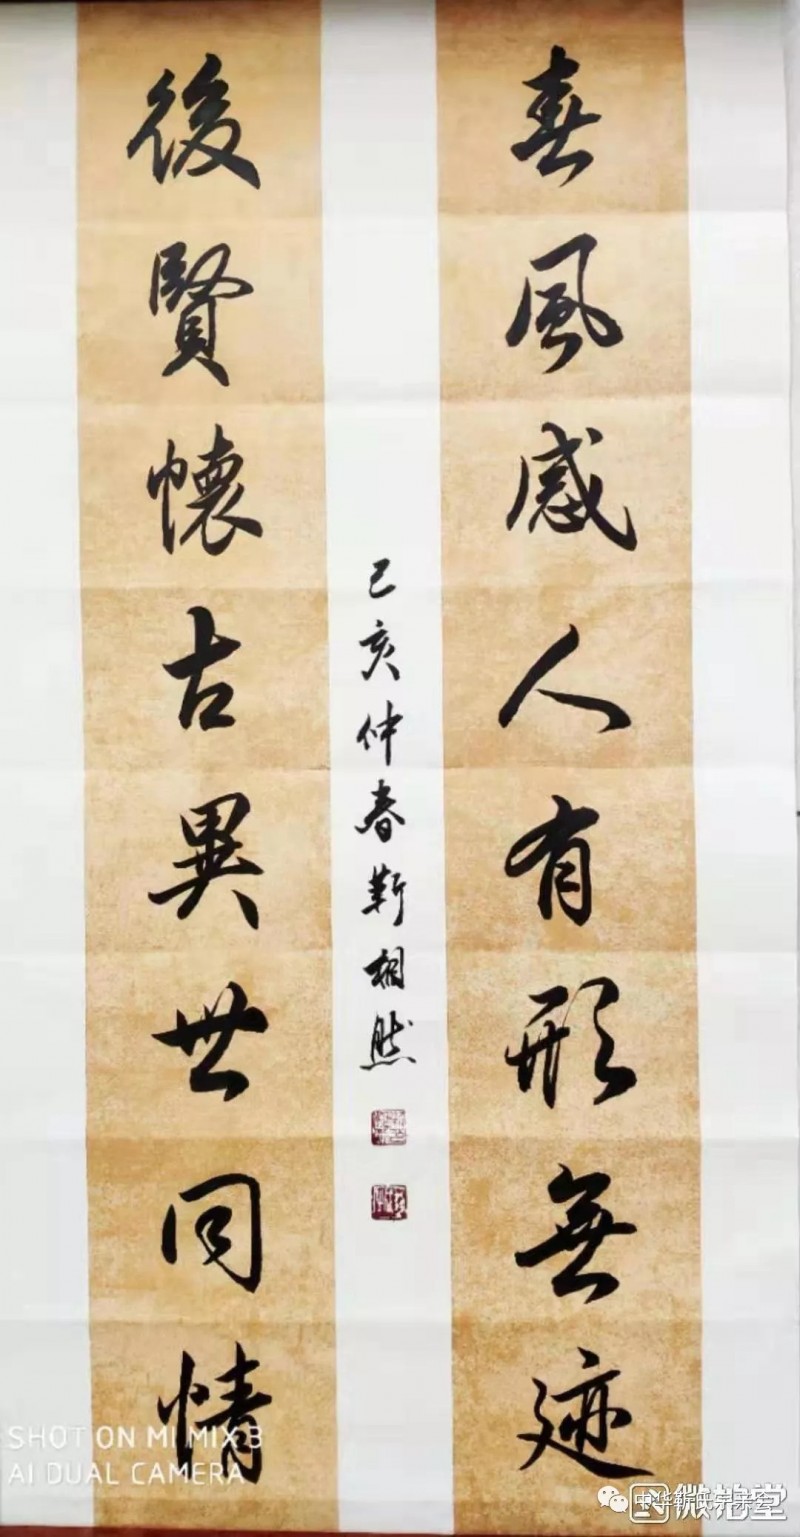 春風感人有形無迹
後賢懷古異世同情
己亥仲春靳相然
SHOT ON MI MIX 3
AI DUAL CAMERA
中华靳氏宗亲会
微拍堂